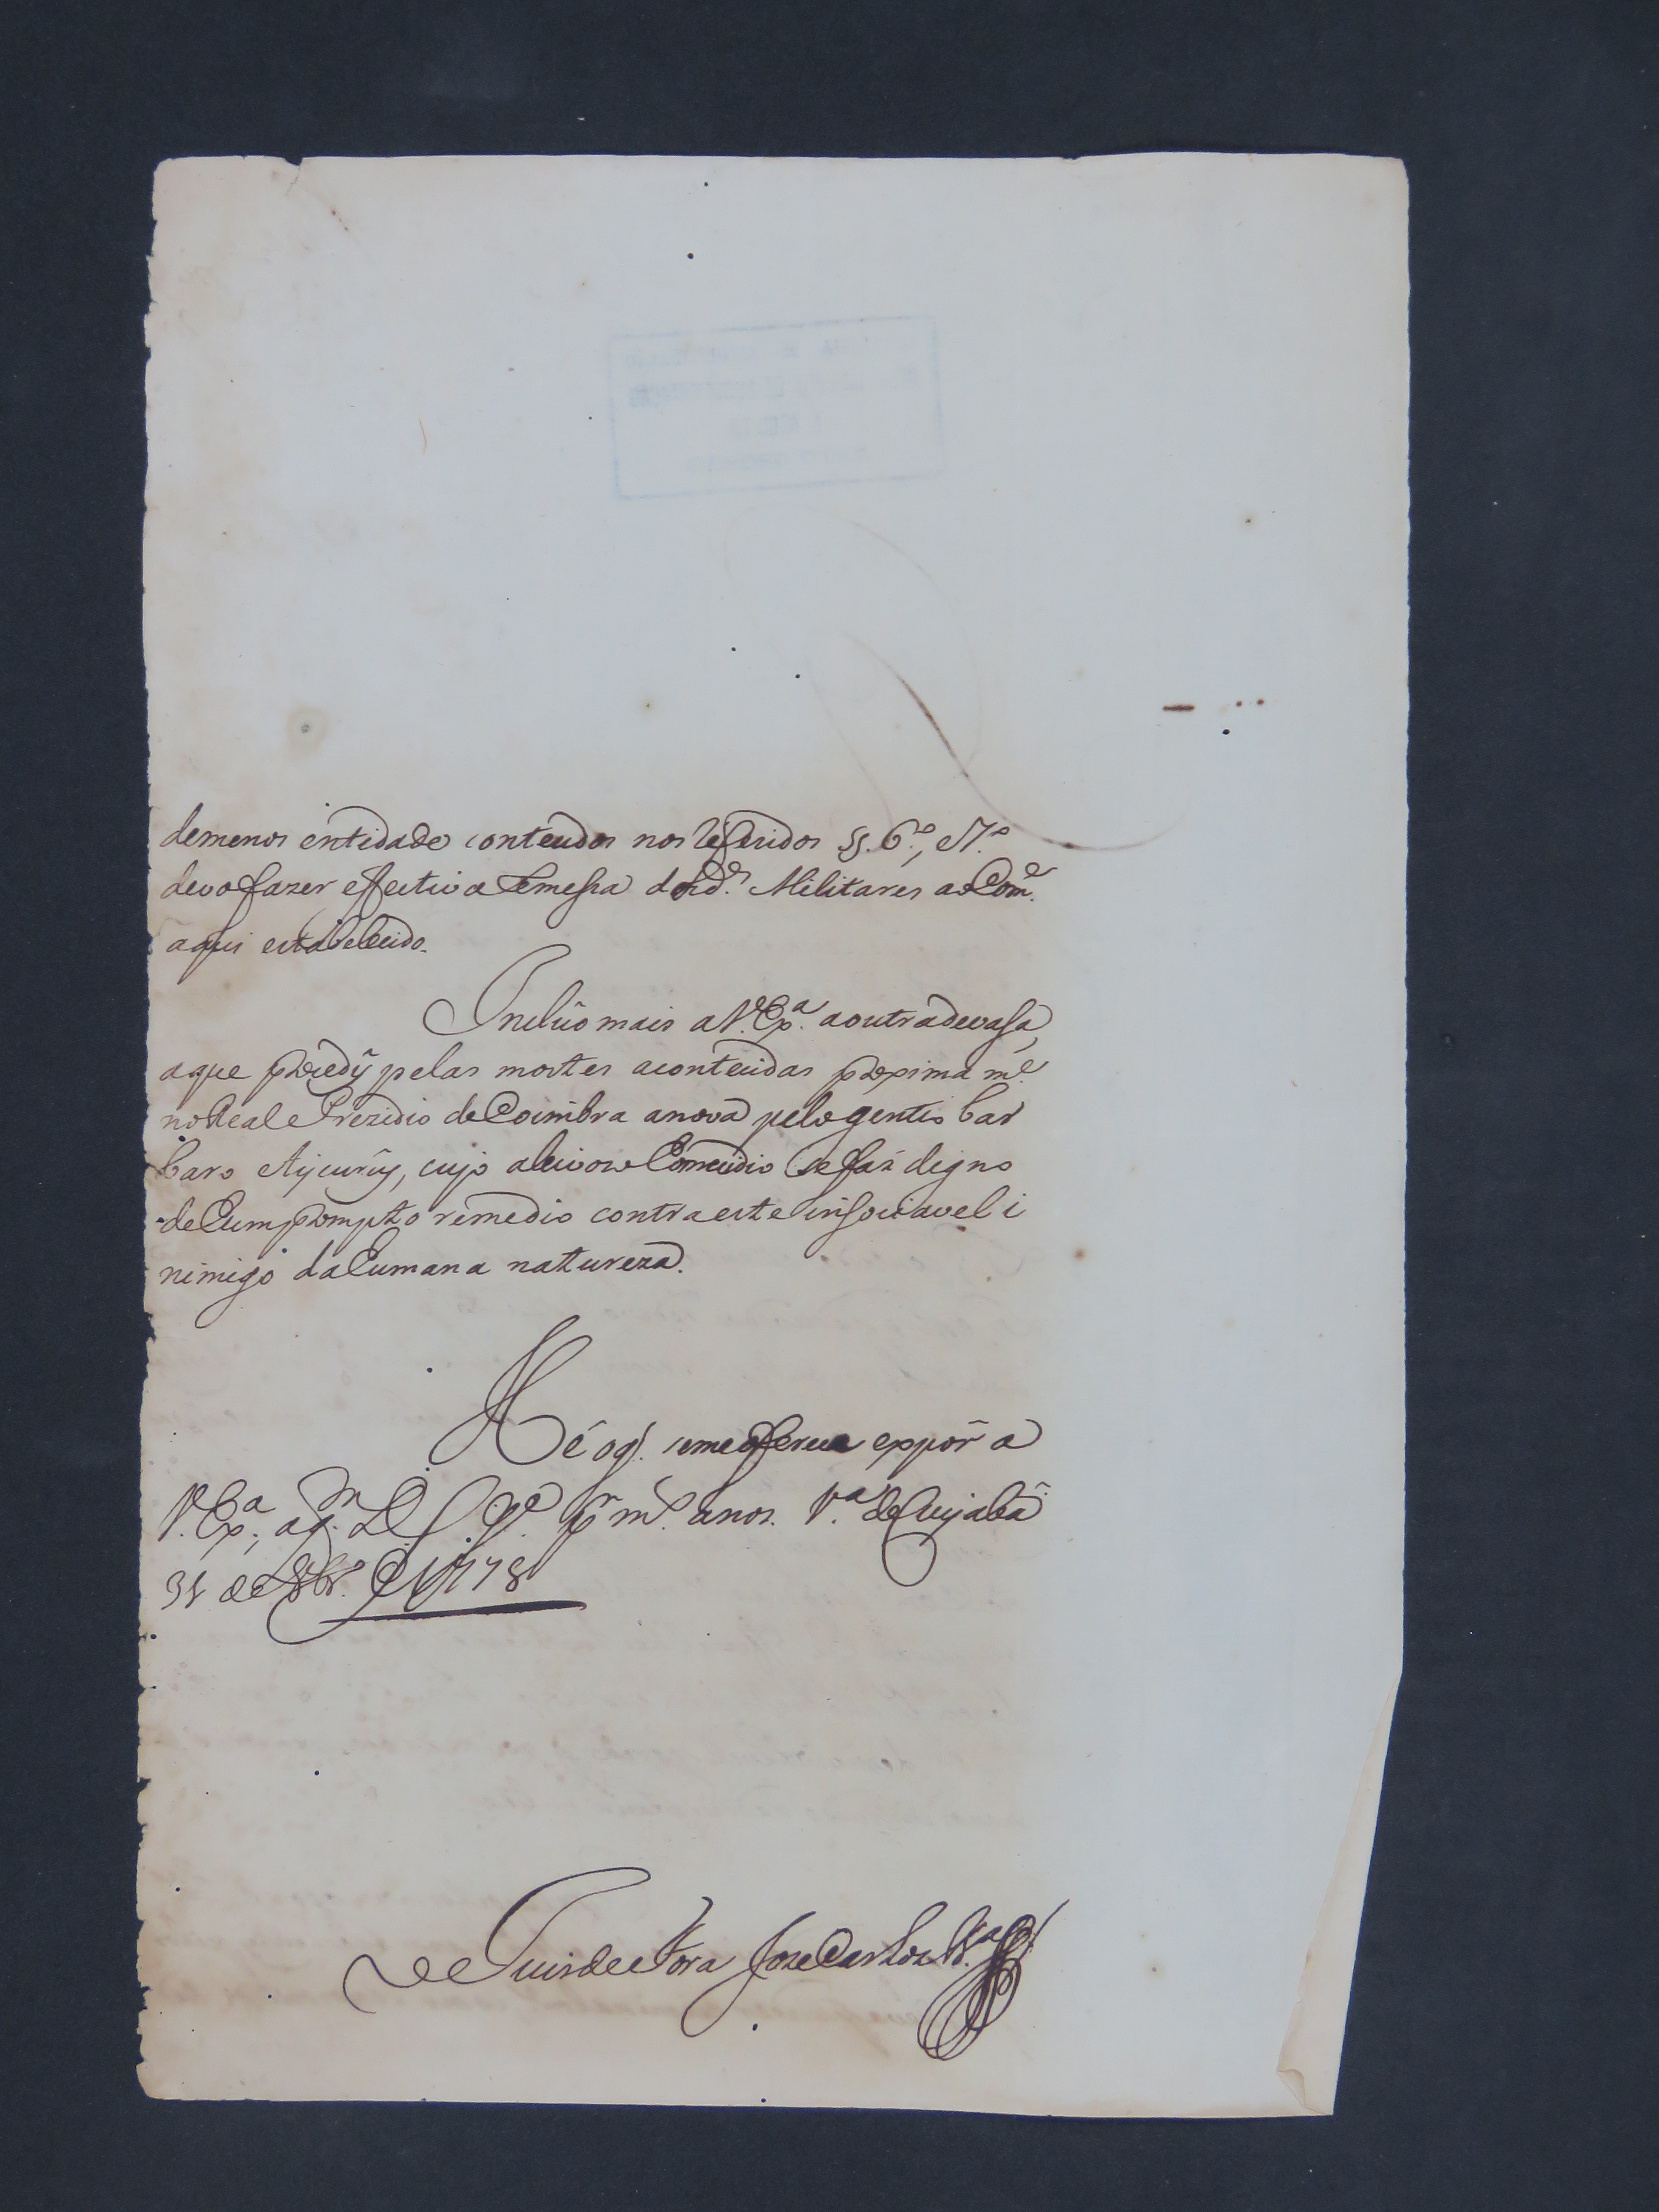 demenos entidade contendos nos referidos §§. 6.º, e 7.º
devo fazer effectiva Remessa dos d.ºs Militares ao Com.e
aqui estabelecido.
Incluo mais a V. Ex.ª a outra devasa,
a que procedÿ pelas mortes acontecidas proxima m.e
no Real Prezidio de Coimbra a nova pelo gentio bar
baro Aycurúy, cujo aleivozo Comicidio se fáz digno
de Cum prompto remedio contra este insociavel i
nimigo da Eumana natureza.
Hé o q. se me oferece expor a
V. Ex.ª, a q.m D.s g.e p.r m.s anos. V.ª de Cuyabá
31 de 8br.º de 1778
O Juis de Fora Joze Carlos Pr.ª